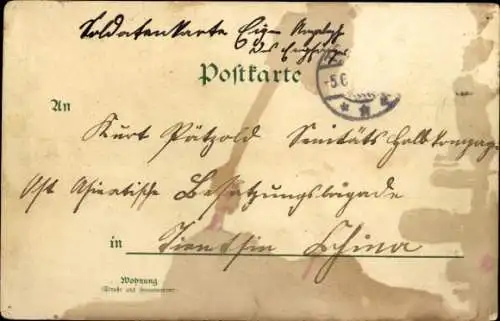 Soldatenkarte Eig.
des Empfängers
Postkarte
-5.6
An
Kurt Pätzold Sanitäts Halbkompagnie
Ost Asiatische Besatzungsbrigade
in Tientsin China
Wohnung
(Straße und Hausnummer)